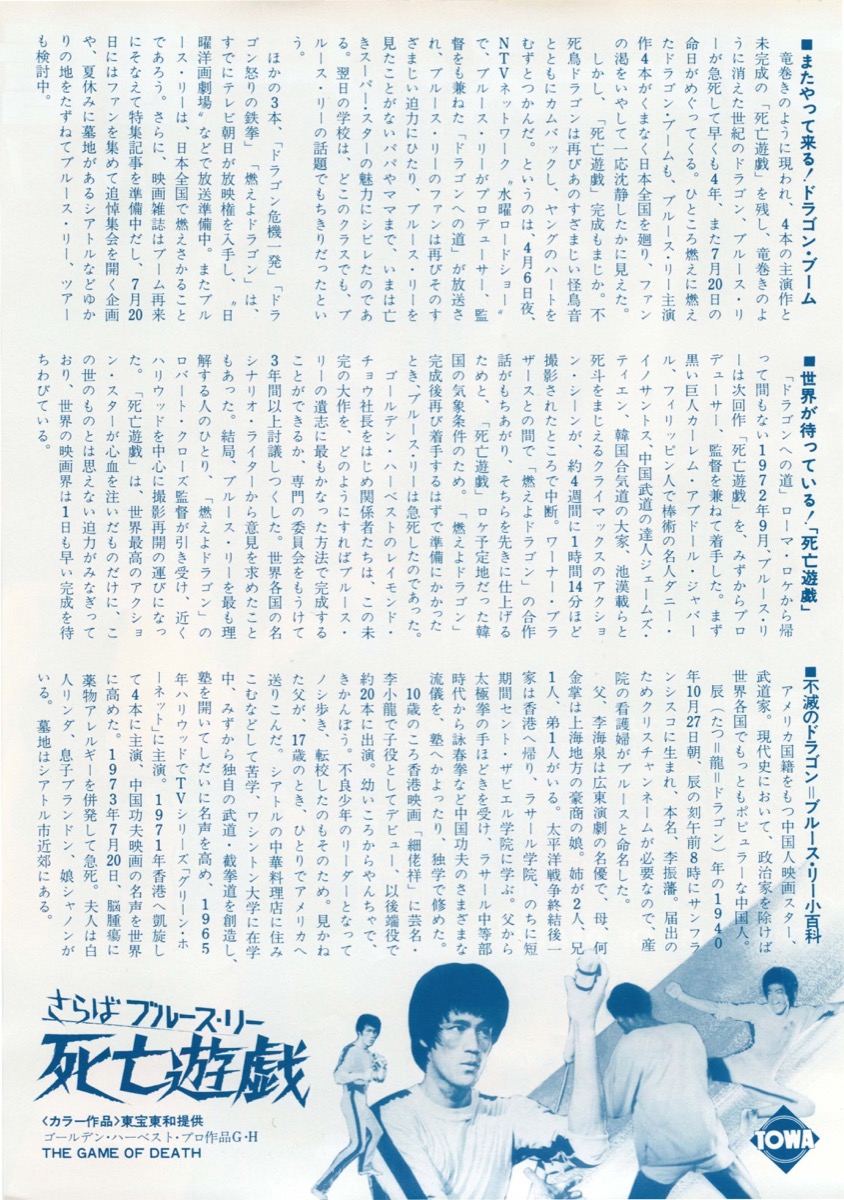 ■またやって来る!ドラゴン・ブーム
竜巻きのように現われ、4本の主演作と
未完成の「死亡遊戯」を残し、竜巻きのよ
うに消えた世紀のドラゴン、ブルース・リ
ーが急死して早くも4年、また7月20日の
命日がめぐってくる。ひところ燃えに燃え
たドラゴン・ブームも、ブルース・リー主演
作4本がくまなく日本全国を廻り、ファン
の渇をいやして一応沈静したかに見えた。
しかし、「死亡遊戯」完成もまじか。不
死鳥ドラゴンは再びあのすざまじい怪鳥音
とともにカムバックし、ヤングのハートを
むずとつかんだ。というのは、4月6日夜、
NTVネットワーク〝水曜ロードショー〟
で、ブルース・リーがプロデューサー、監
督をも兼ねた「ドラゴンへの道」が放送さ
れ、ブルース・リーのファンは再びそのす
ざまじい迫力にひたり、ブルース・リーを
見たことがないパパやママまで、いまは亡
きスーパー・スターの魅力にシビレたのであ
る。翌日の学校は、どこのクラスでも、ブ
ルース・リーの話題でもちきりだったとい
う。
ほかの3本、「ドラゴン危機一発」「ドラ
ゴン怒りの鉄拳」「燃えよドラゴン」は、
すでにテレビ朝日が放映権を入手し、〝日
曜洋画劇場〟などで放送準備中。またブル
ース・リーは、日本全国で燃えさかること
であろう。さらに、映画雑誌はブーム再来
にそなえて特集記事を準備中だし、7月20
日にはファンを集めて追悼集会を開く企画
や、夏休みに墓地があるシアトルなどゆか
りの地をたずねてブルース・リー、ツアー
も検討中。
■世界が待っている!「死亡遊戯」
「ドラゴンへの道」ローマ・ロケから帰
って間もない1972年9月、ブルース・リ
ーは次回作「死亡遊戯」を、みずからプロ
デューサー、監督を兼ねて着手した。まず
黒い巨人カーレム・アブドール・ジャバー
ル、フィリッピン人で棒術の名人ダニー・
イノサントス、中国武道の達人ジェームズ・
ティエン、韓国合気道の大家、池漢載らと
死斗をまじえるクライマックスのアクショ
ン・シーンが、約4週間に1時間14分ほど
撮影されたところで中断。ワーナー・ブラ
ザースとの間で「燃えよドラゴン」の合作
話がもちあがり、そちらを先きに仕上げる
ためと、「死亡遊戯」ロケ予定地だった韓
国の気象条件のため。「燃えよドラゴン」
完成後再び着手するはずで準備にかかった
とき、ブルース・リーは急死したのであった。
ゴールデン・ハーベストのレイモンド・
チョウ社長をはじめ関係者たちは、この未
完の大作を、どのようにすればブルース・
リーの遺志に最もかなった方法で完成する
ことができるか、専門の委員会をもうけて
3年間以上討議しつくした。世界各国の名
シナリオ・ライターから意見を求めたこと
もあった。結局、ブルース・リーを最も理
解する人のひとり、「燃えよドラゴン」の
ロバート・クローズ監督が引き受け、近く
ハリウッドを中心に撮影再開の運びになっ
た。「死亡遊戯」は、世界最高のアクショ
ン・スターが心血を注いだものだけに、こ
の世のものとは思えない迫力がみなぎって
おり、世界の映画界は1日も早い完成を待
ちわびている。
■不滅のドラゴン=ブルース・リー小百科
アメリカ国籍をもつ中国人映画スター、
武道家。現代史において、政治家を除けば
世界各国でもっともポピュラーな中国人。
辰(たつ=龍=ドラゴン)年の1940
年10月27日朝、辰の刻午前8時にサンフラ
ンシスコに生まれ、本名、李振藩。届出の
ためクリスチャンネームが必要なので、産
院の看護婦がブルースと命名した。
父、李海泉は広東演劇の名優で、母、何
金掌は上海地方の豪商の娘。姉が2人、兄
1人、弟1人がいる。太平洋戦争終結後一
家は香港へ帰り、ラサール学院、のちに短
期間セント・ザビエル学院に学ぶ。父から
太極拳の手ほどきを受け、ラサール中等部
時代から詠春拳など中国功夫のさまざまな
流儀を、塾へかよったり、独学で修めた。
10歳のころ香港映画「細佬祥」に芸名・
李小龍で子役としてデビュー、以後端役で
約20本に出演。幼いころからやんちゃで、
きかんぼう。不良少年のリーダーとなって
ノシ歩き、転校したのもそのため。見かね
た父が、17歳のとき、ひとりでアメリカへ
送りこんだ。シアトルの中華料理店に住み
こむなどして苦学、ワシントン大学に在学
中、みずから独自の武道・截拳道を創造し、
塾を開いてしだいに名声を高め、1965
年ハリウッドでTVシリーズ「グリーン・ホ
ーネット」に主演。1971年香港へ凱旋し
て4本に主演、中国功夫映画の名声を世界
に高めた。1973年7月20日、脳腫瘍に
薬物アレルギーを併発して急死。夫人は白
人リンダ、息子ブランドン、娘シャノンが
いる。墓地はシアトル市近郊にある。
さらばブルース・リー
死亡遊戯
〈カラー作品〉東宝東和提供
ゴールデン・ハーベスト・プロ作品G・H
THE GAME OF DEATH
TOWA